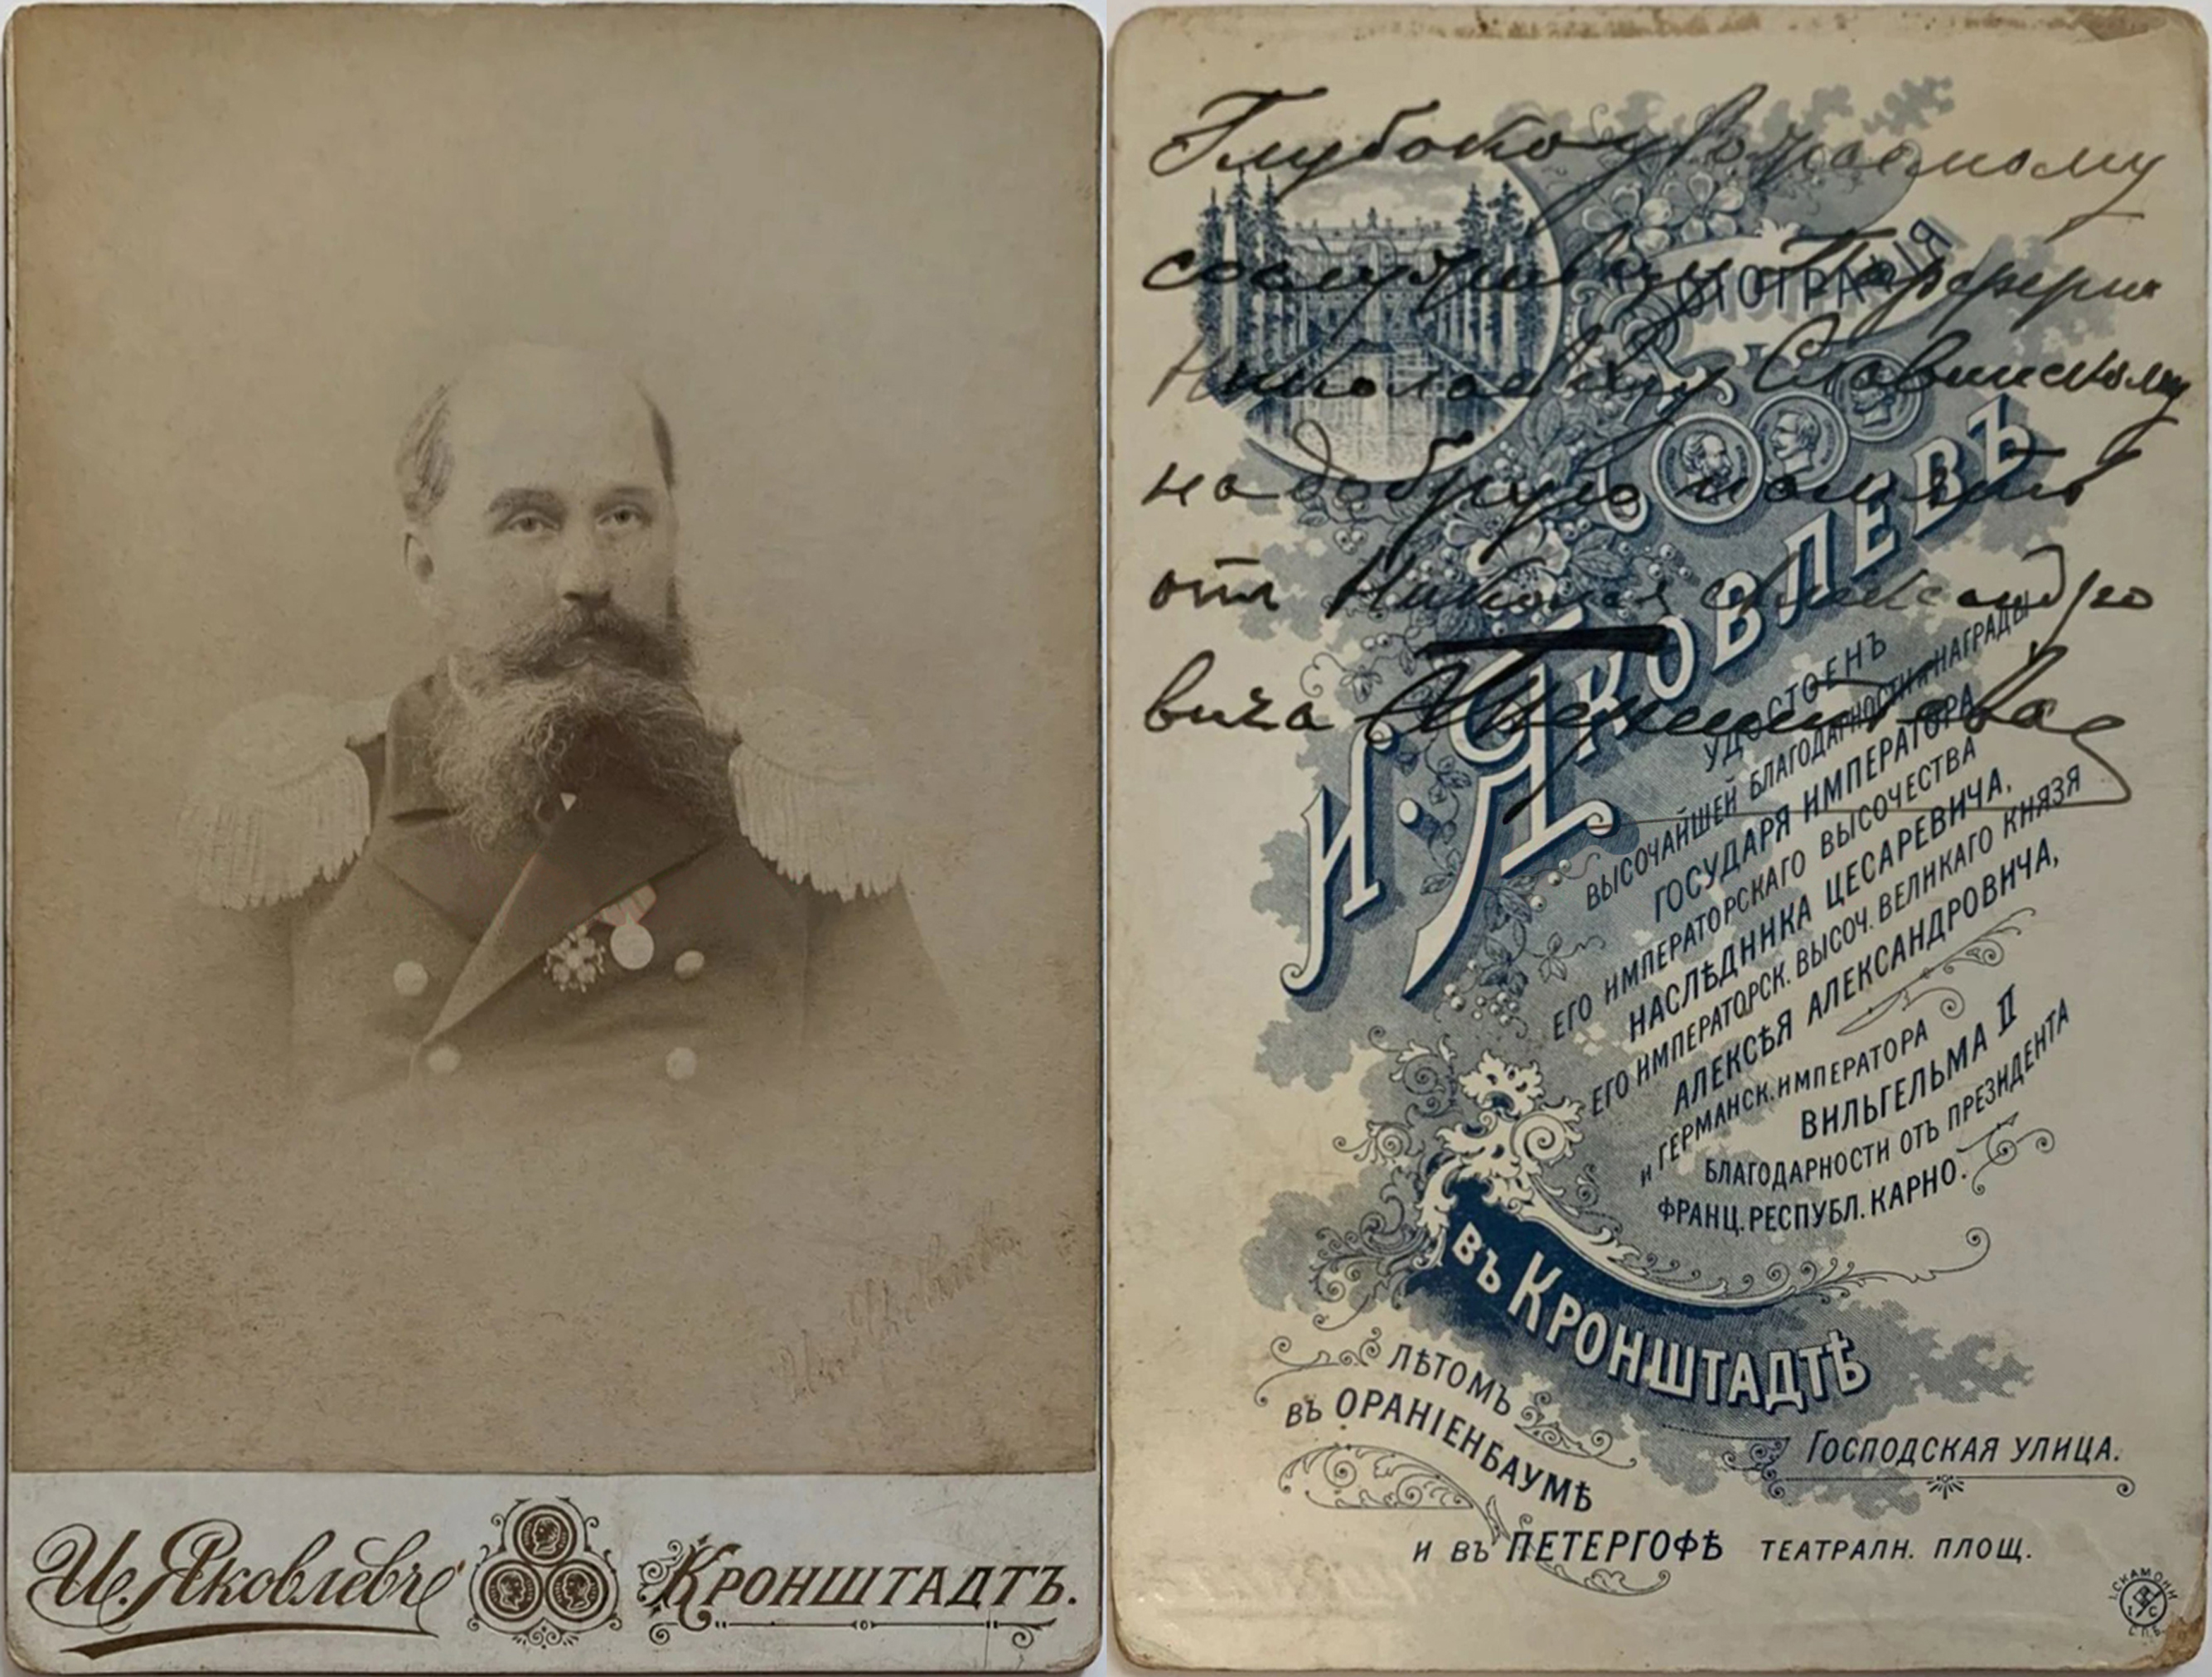 И. Яковлевъ
Кронштадтъ.
Глубокоуважаемому
сослуживцу Порфирию
Николаевичу Славинскому
на добрую память
отъ Николая Александро
вича
Фотографія
И. Яковлевъ
удостоенъ
высочайшей благодарности и награды
государя императора
его императорскаго высочества
наслѣдника цесаревича,
его императорск. высоч. великаго князя
алексѣя александровича,
и германск. императора
вильгельма II
благодарности отъ президента
франц. республ. карно.
въ Кронштадтѣ
лѣтомъ
въ Ораніенбаумѣ
Господская улица.
и въ Петергофѣ театралн. площ.
I. Скамони
I С
С.П.Б.